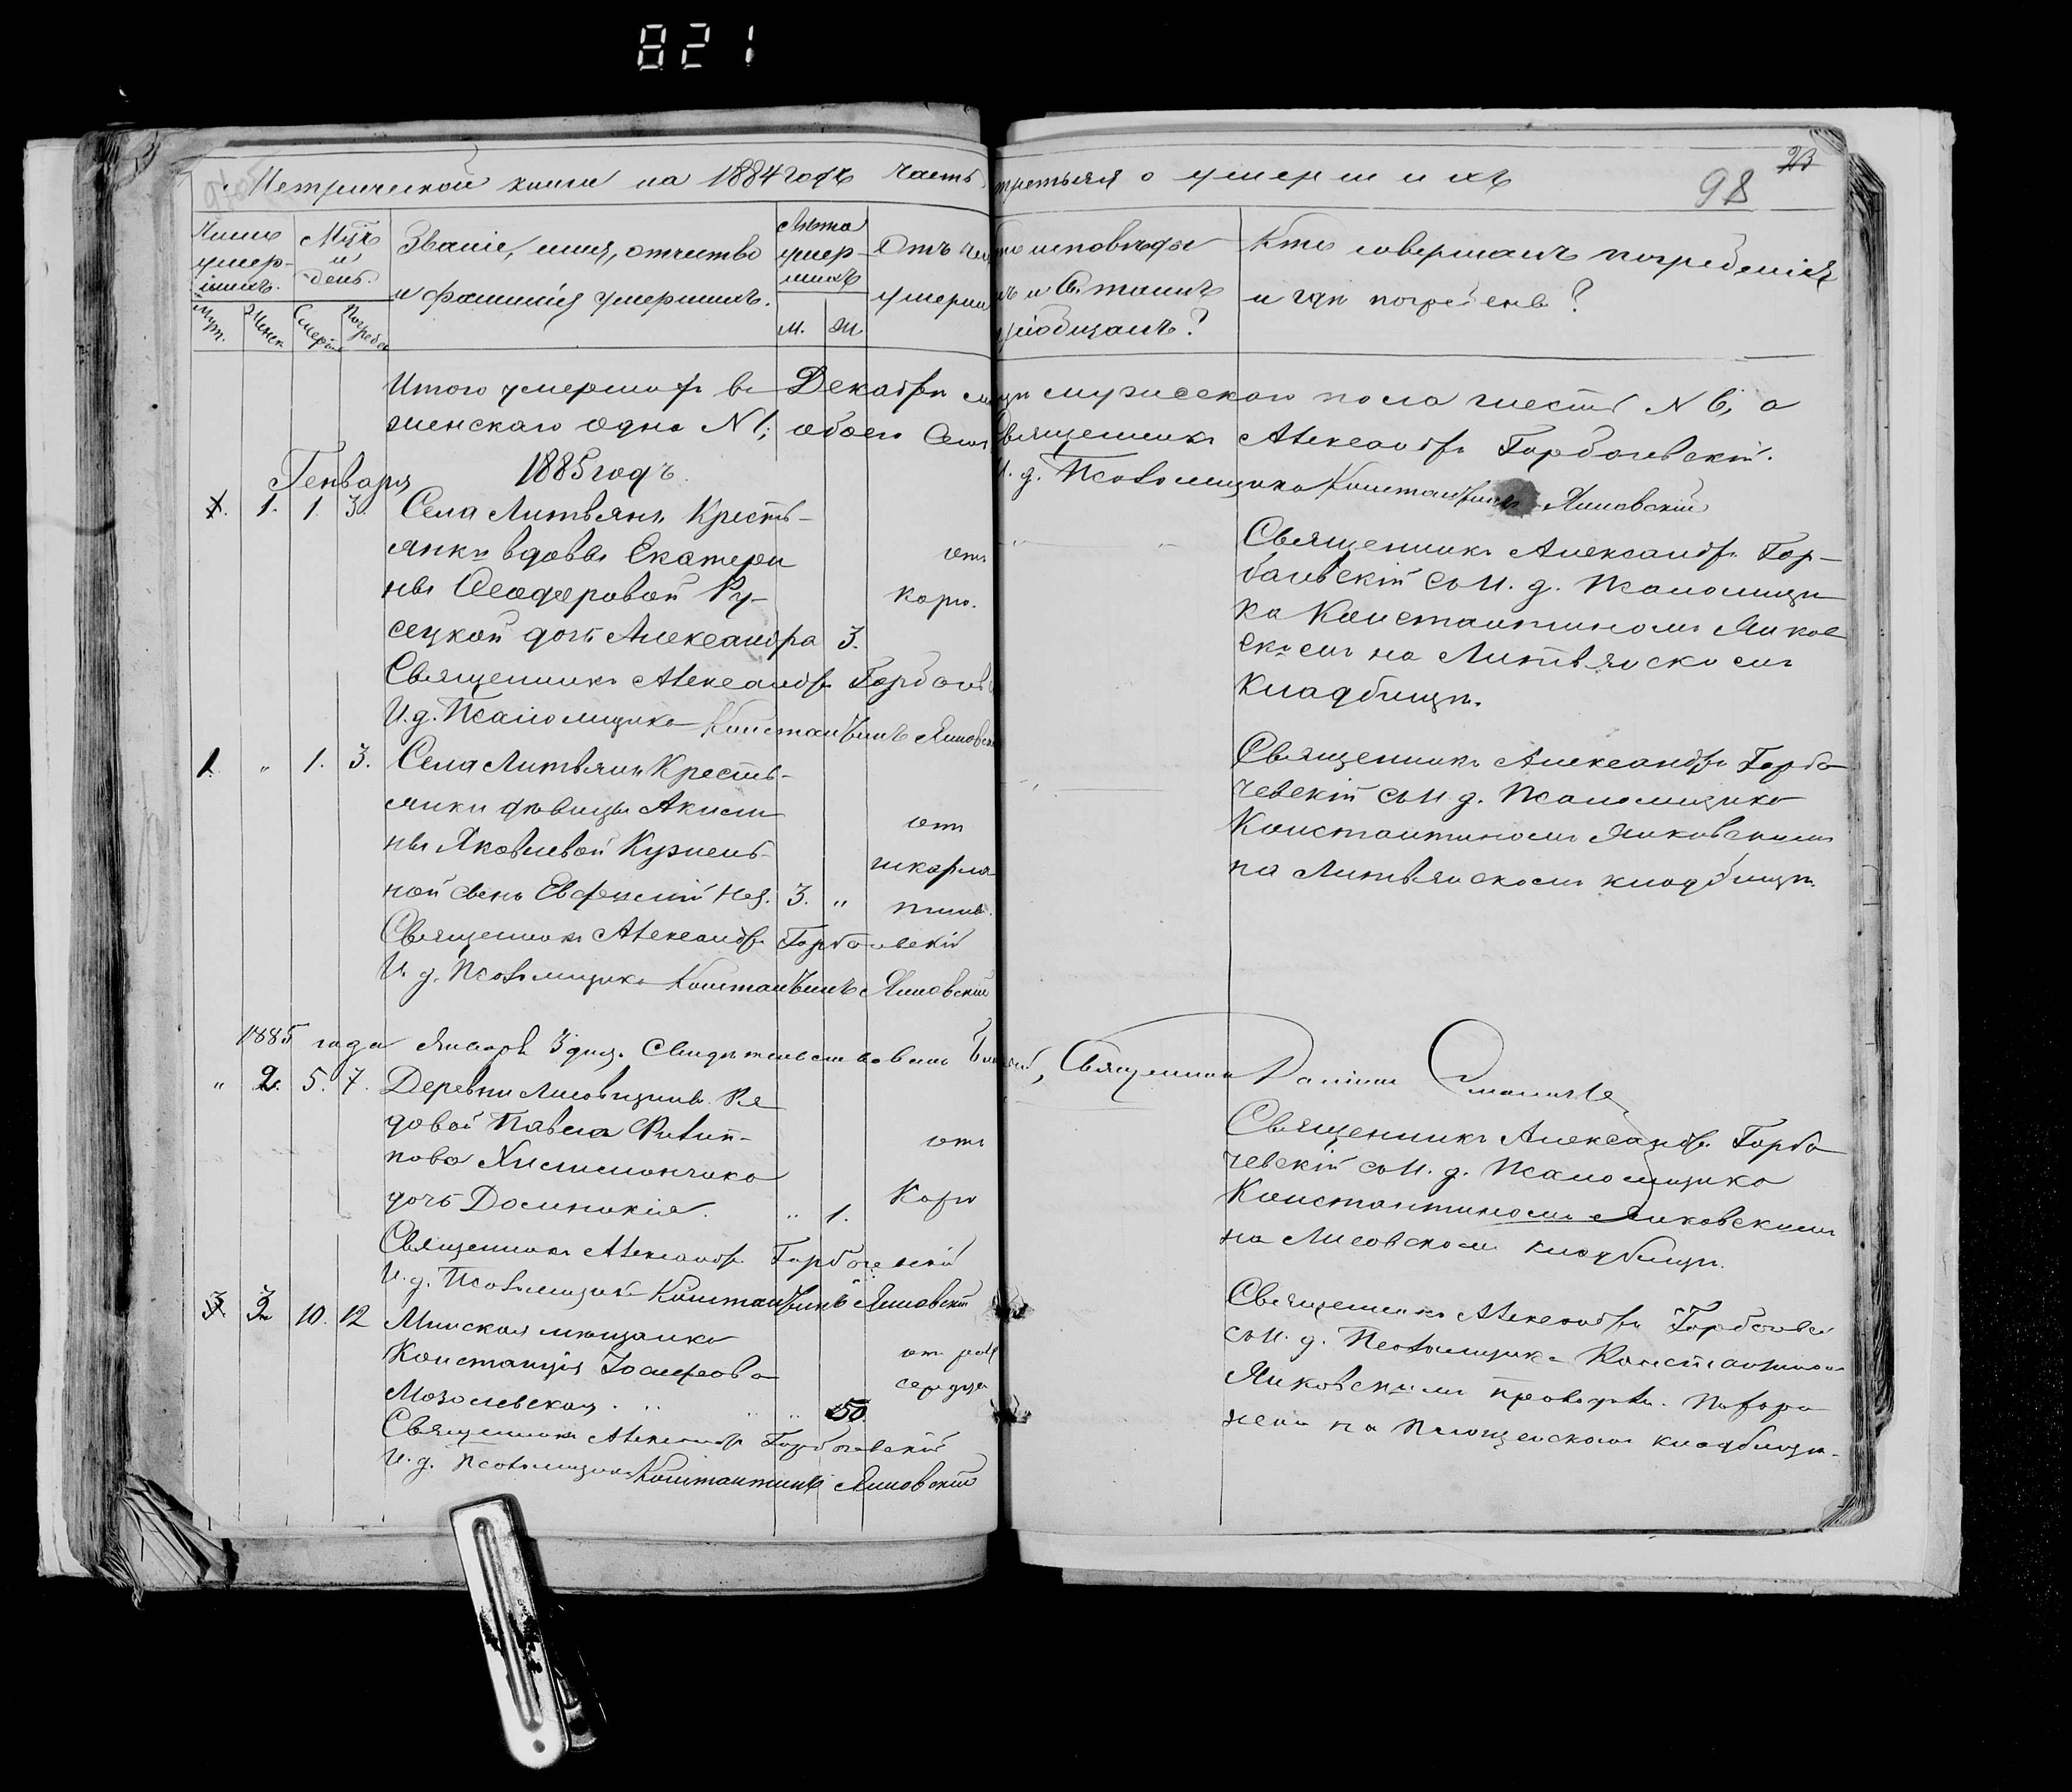 821
Метрической книги на 1884 годъ часть третьяя о умершихъ
98
Число умер-шихъ.
Мѣсц. и день.
Званіе, имя, отчество и фамилія умершихъ.
Лѣта умер-шихъ
Отъ чего умерли
Кто исповѣды и пріобщалъ?
Кто совершалъ погребеніе и гдѣ погребены?
Муж. Женск Смерти Погребен
м. ж.
Итого умершихъ въ Декабрѣ мужескаго пола шесть N 6, а
женскаго одна N 1, обоего
Священникъ Александръ Горбачевскій.
И. д. Псаломщика Константинъ Янковскій
Генваря 1885 годъ.
1. 1. 3. Села Литвянъ Кресть-
янки вдовы Екатери
ны Ѳеодоровой Ру-
сецкой дочь Александра 3.
отъ
кори.
Священникъ Александръ Гор-
бачевскій съ И. д. Псаломщи
ка Константиномъ Янков
скимъ на Литвянскомъ
кладбищѣ.
Священникъ Александръ Горбачевс
И. д. Псаломщика Константинъ Янковскі
1. " 1. 3. Села Литвянъ Кресть-
янки дѣвицы Акили
ны Яковлевой
ной сынъ Евфимій нез. 3. "
отъ
шкарла
тины.
Священникъ Александръ Горба
чевскій съ И. д. Псаломщика
Константиномъ Янковскимъ
на Литвянскомъ кладбищѣ.
Священникъ Александръ Горбачевскій
И. д. Псаломщика Константинъ Янковскій
1885 года Января 3 дня. Свидѣтельствовалъ Священникъ
" 2. 5. 7. Деревни
довой Павла Филип-
пова
дочь Доминикія. " 1.
отъ
Кори
Священникъ Александръ Горба
чевскій съ И. д. Псаломщика
Константиномъ Янковскимъ
на Лисовскомъ кладбищѣ.
Священникъ Александръ Горбачевскій
И. д. Псаломщика Константинъ Янковскій
3 10. 12 Минская мѣщанка
Констанція Іосифова
" " 50.
Священникъ Александръ Горбачевс
съ И. д. Псаломщика Константином
Янковскимъ
на кладбищѣ.
Священникъ Александръ Горбачевскій
И. д. Псаломщика Константинъ Янковскій